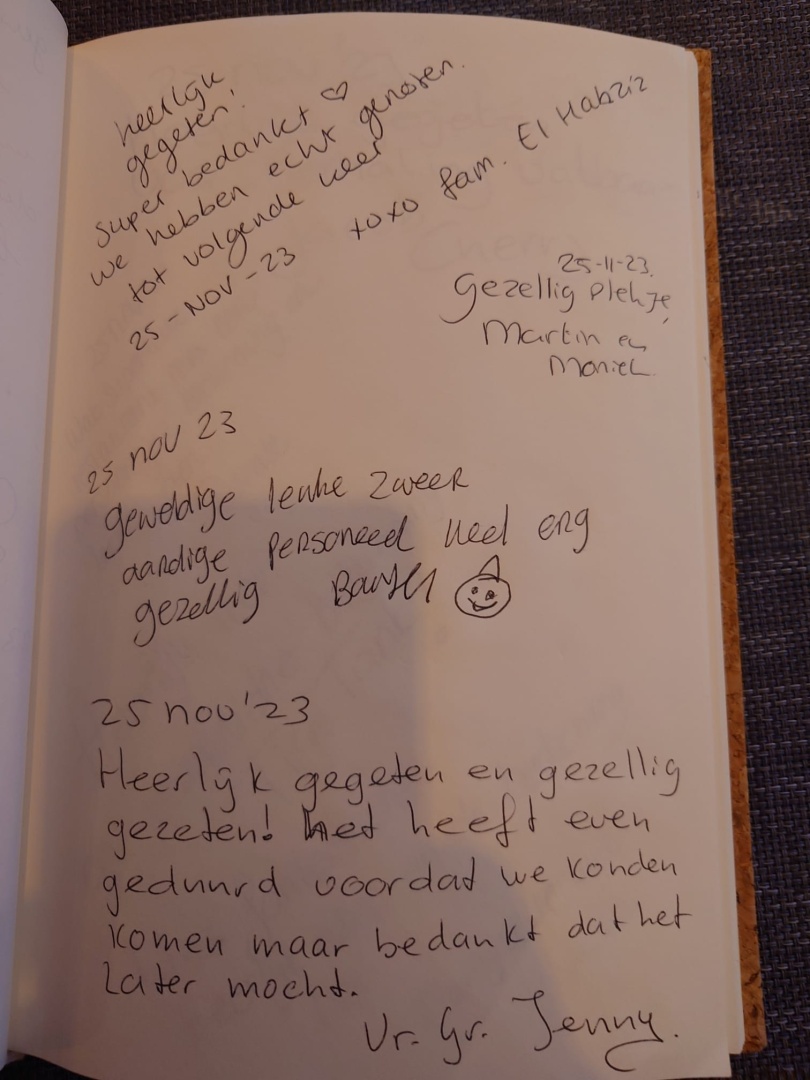 heerlijk
gegeten!
super bedankt ♡
we hebben echt genoten.
tot volgende keer
25-NOV-23 xoxo fam. El Habziz
25-11-23.
Gezellig Plekje,
Martin en
Moniek
25 nov 23
geweldige leuke zweer
aardige personeel heel erg
gezellig
25 nov '23
Heerlijk gegeten en gezellig
gezeten! Het heeft even
geduurd voordat we konden
komen maar bedankt dat het
later mocht.
Vr. Gr. Jenny.